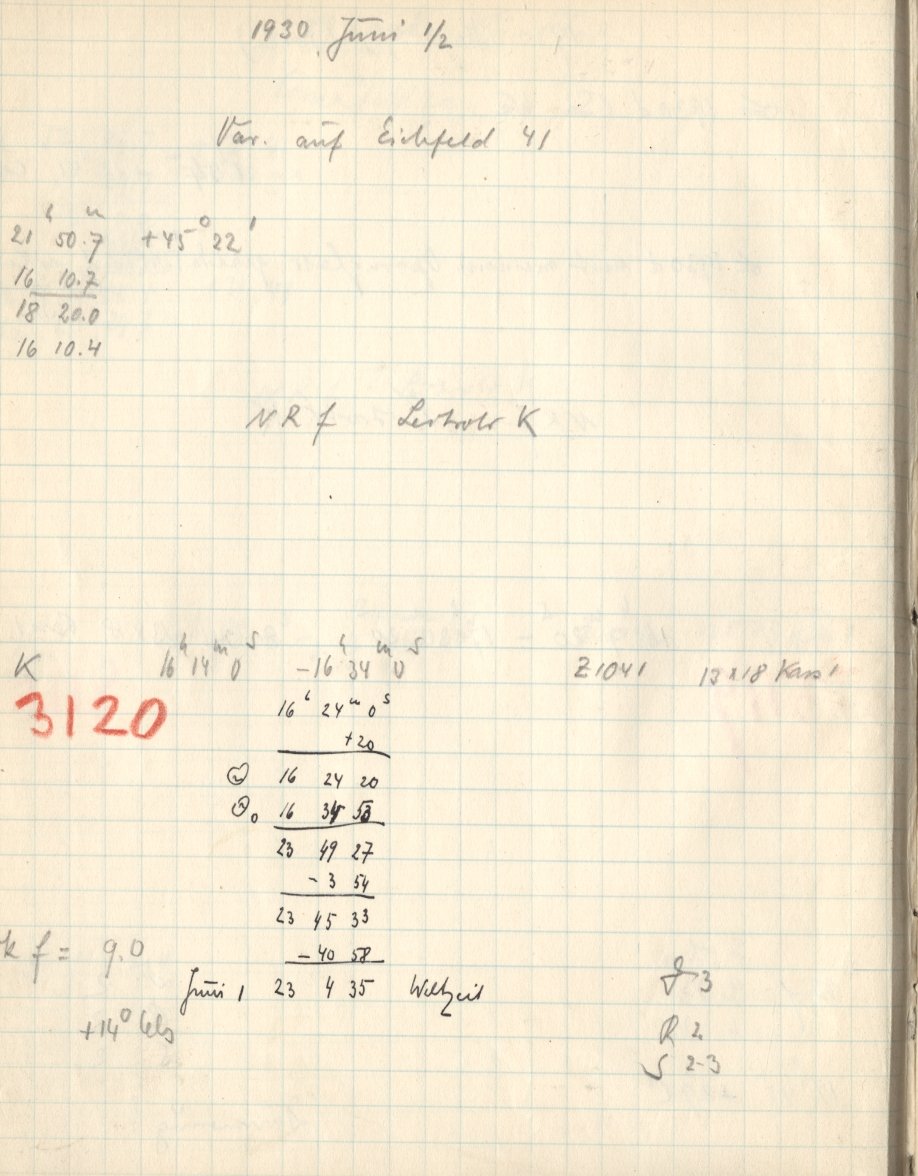 1930 Juni 1/2
Var. auf Eichfeld 41
21ʰ 50.7ᵐ +45° 22'
16 10.7
18 20.0
16 10.4
NR f Leitrohr K
K 16ʰ 14ᵐ 0ˢ – 16ʰ 34ᵐ 0ˢ Z1041 13x18 Kass
3120
16ʰ 24ᵐ 0ˢ
+20
16 24 20
16 34 53
23 49 27
- 3 54
23 45 33
- 40 58
Juni 1 23 4 35 Weltzeit
k f = 9.0
+14° Cels
J 3
R 2
S 2-3